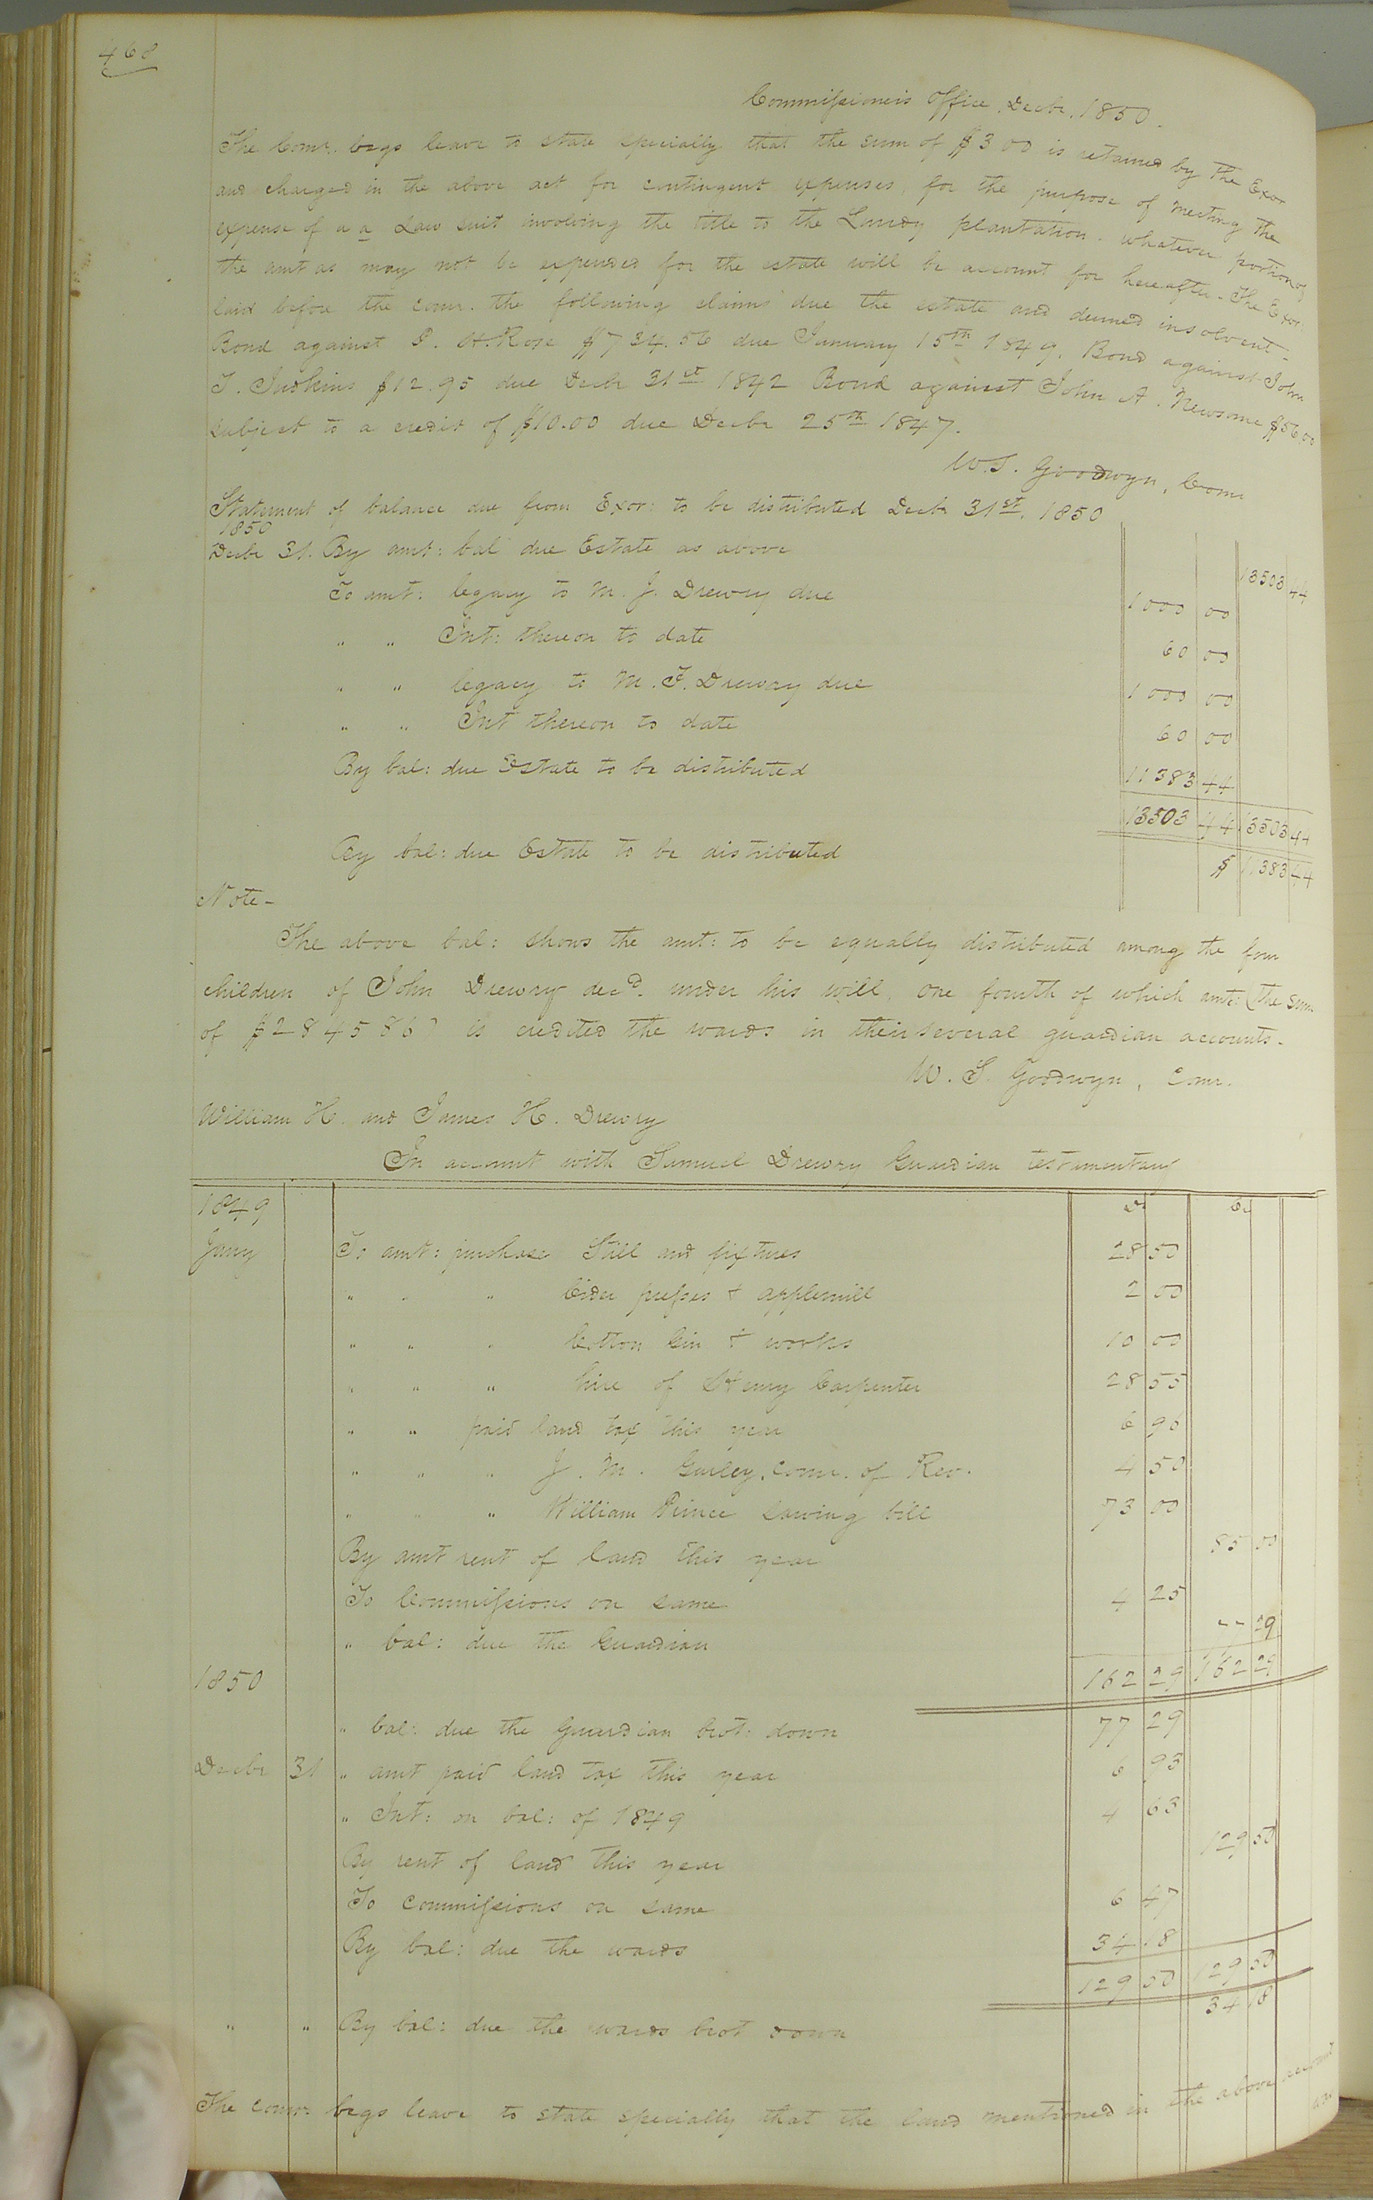 468
Commissioneis Office, Decbr. 1850.
The Comr. begs leave to state specially that the sum of $300 is retained by the Exor
and charged in the above act for contingent expenses, for the purpose of meeting the
expense of a a Law suit involving the title to the Lundy plantation. whatever portion of
the amt as may not be expended for the estate will be account for hereafter. The Exor:
laid before the comr. the following claims due the estate and deemed insolvent-
Bond against P. H. Rose $734.56 due January 15th 1849. Bond against John
T. Judkins $12.95 due Decbr 31st 1842 Bond against John A. Newsome $56.00
subject to a credit of $10.00 due Decbr 25th 1847.
W. S. Goodwyn, Comr
Statement of balance due from Exor: to be distributed Decbr 31st. 1850
1850
Decbr 31. By amt: bal due Estate as above 13503 44
To amt: legacy to M. J. Drewry due 1000 00
" " Int: thereon to date 60 00
" " legacy to M. T. Drewry due 1000 00
" " Int thereon to date 60 00
By bal: due Estate to be distributed 11383 44
13503 44 13503 44
By bal: due Estate to be distributed $ 11383 44
Note-
The above bal: shows the amt: to be equally distributed among the four
children of John Drewry decd. under his will, one fourth of which amt: (the sum
of $2845 86) is credited the wards in their several guardian accounts.
W. S. Goodwyn, Comr.
William H. and James H. Drewry
In account with Samuel Drewry Guardian testamentary
1849 Dr Cr
Jany To amt: purchase Still and fixtures 28 50
" " " Cider presses & applemill 2 00
" " " Cotton Gin & works 10 00
" " " hire of Henry Carpenter 28 55
" " paid land tax this year 6 96
" " " J. M. Gurley, comr. of Rev. 4 50
" " " William Prince sawing bill 73 00
By amt rent of land this year 85 00
To Commissions on same 4 25
" bal: due the Guardian 77 29
1850 162 29 162 29
" bal: due the Guardian brot: down 77 29
Decbr 31 " amt paid land tax this year 6 93
" Int: on bal: of 1849 4 63
By rent of land this year 129 50
To commissions on same 6 47
By bal: due the wards 34 18
129 50 129 50
" " By bal: due the wards brot down 34 18
The comr: begs leave to state specially that the land mentioned in the above account